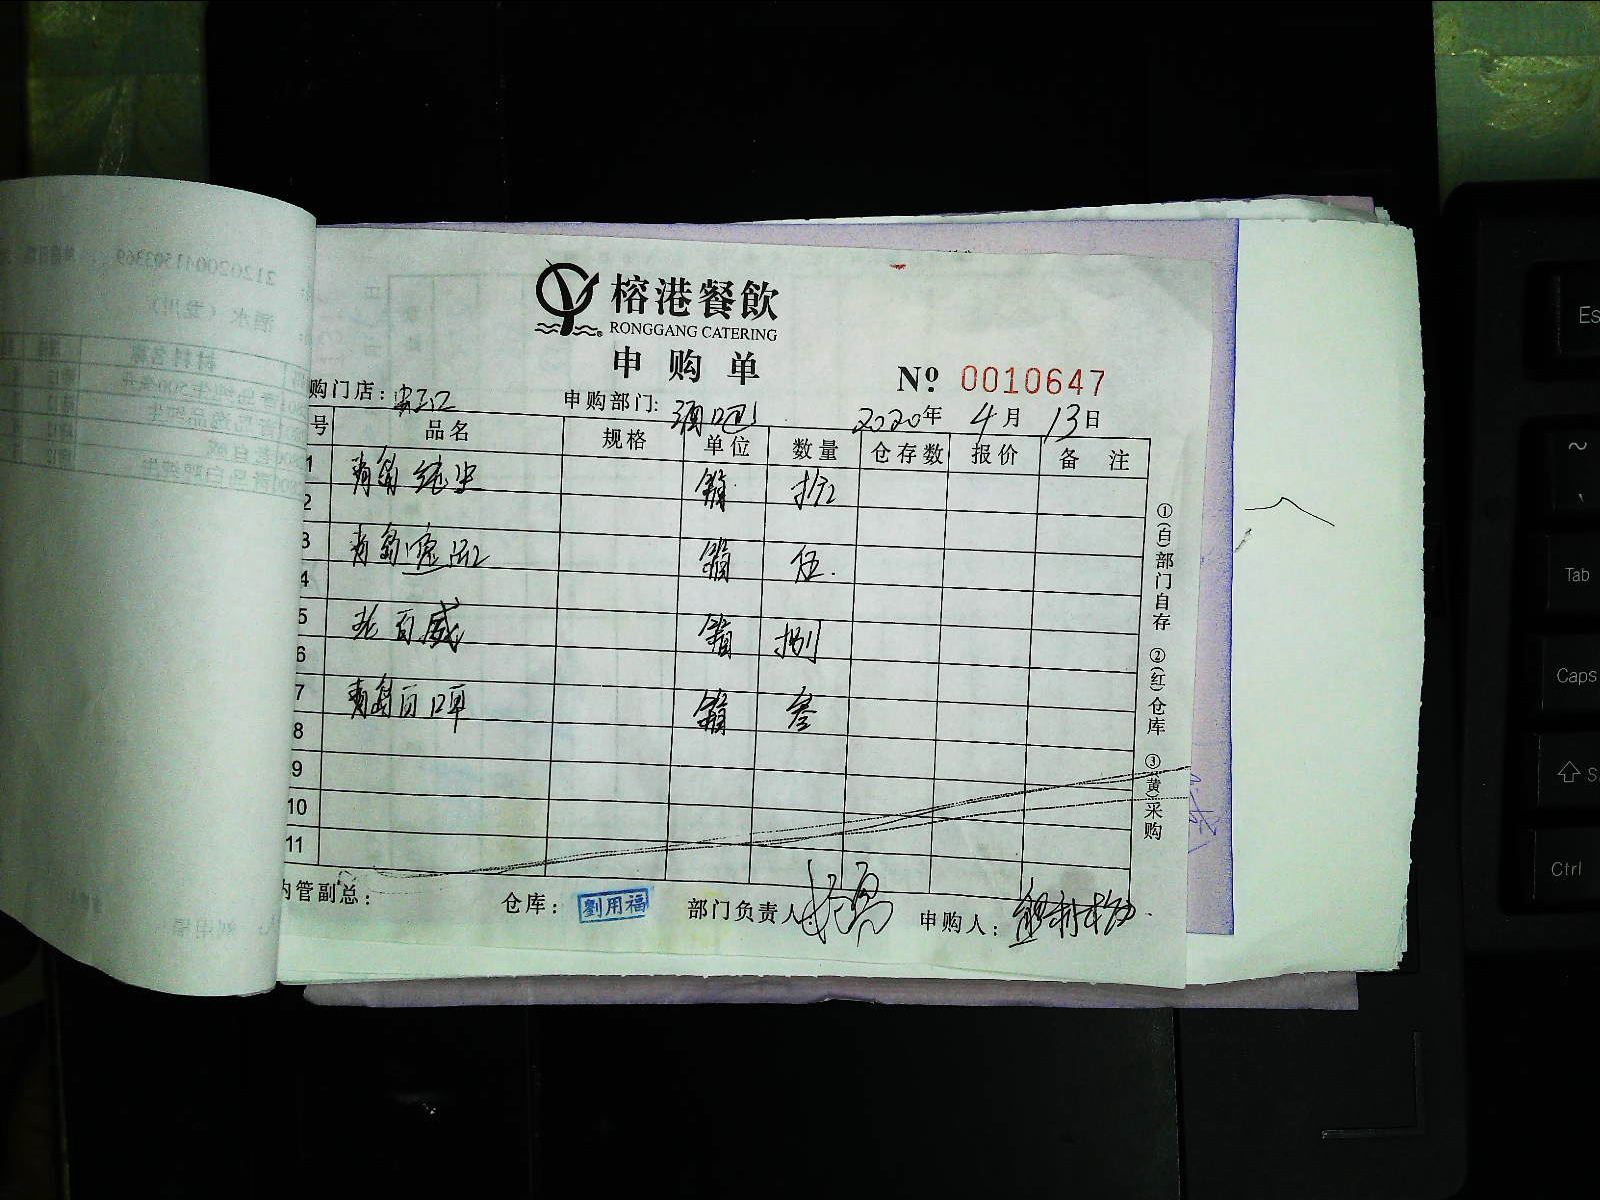 榕港餐飲
RONGGANG CATERING
申购单
Nº 0010647
购门店: 申购部门: 酒吧 2020年 4月 13日
号 品名 规格 单位 数量 仓存数 报价 备 注
1 青岛纯生 箱 拾
2
3 青岛 箱 伍
4
5 老百威 箱 捌
6
7 青岛白啤 箱 叁
8
9
10
11
①(白)部门自存 ②(红)仓库 ③(黄)采购
内管副总: 仓库: 劉用福 部门负责人: 申购人:
Es
~
、
Tab
Caps
S
Ctrl